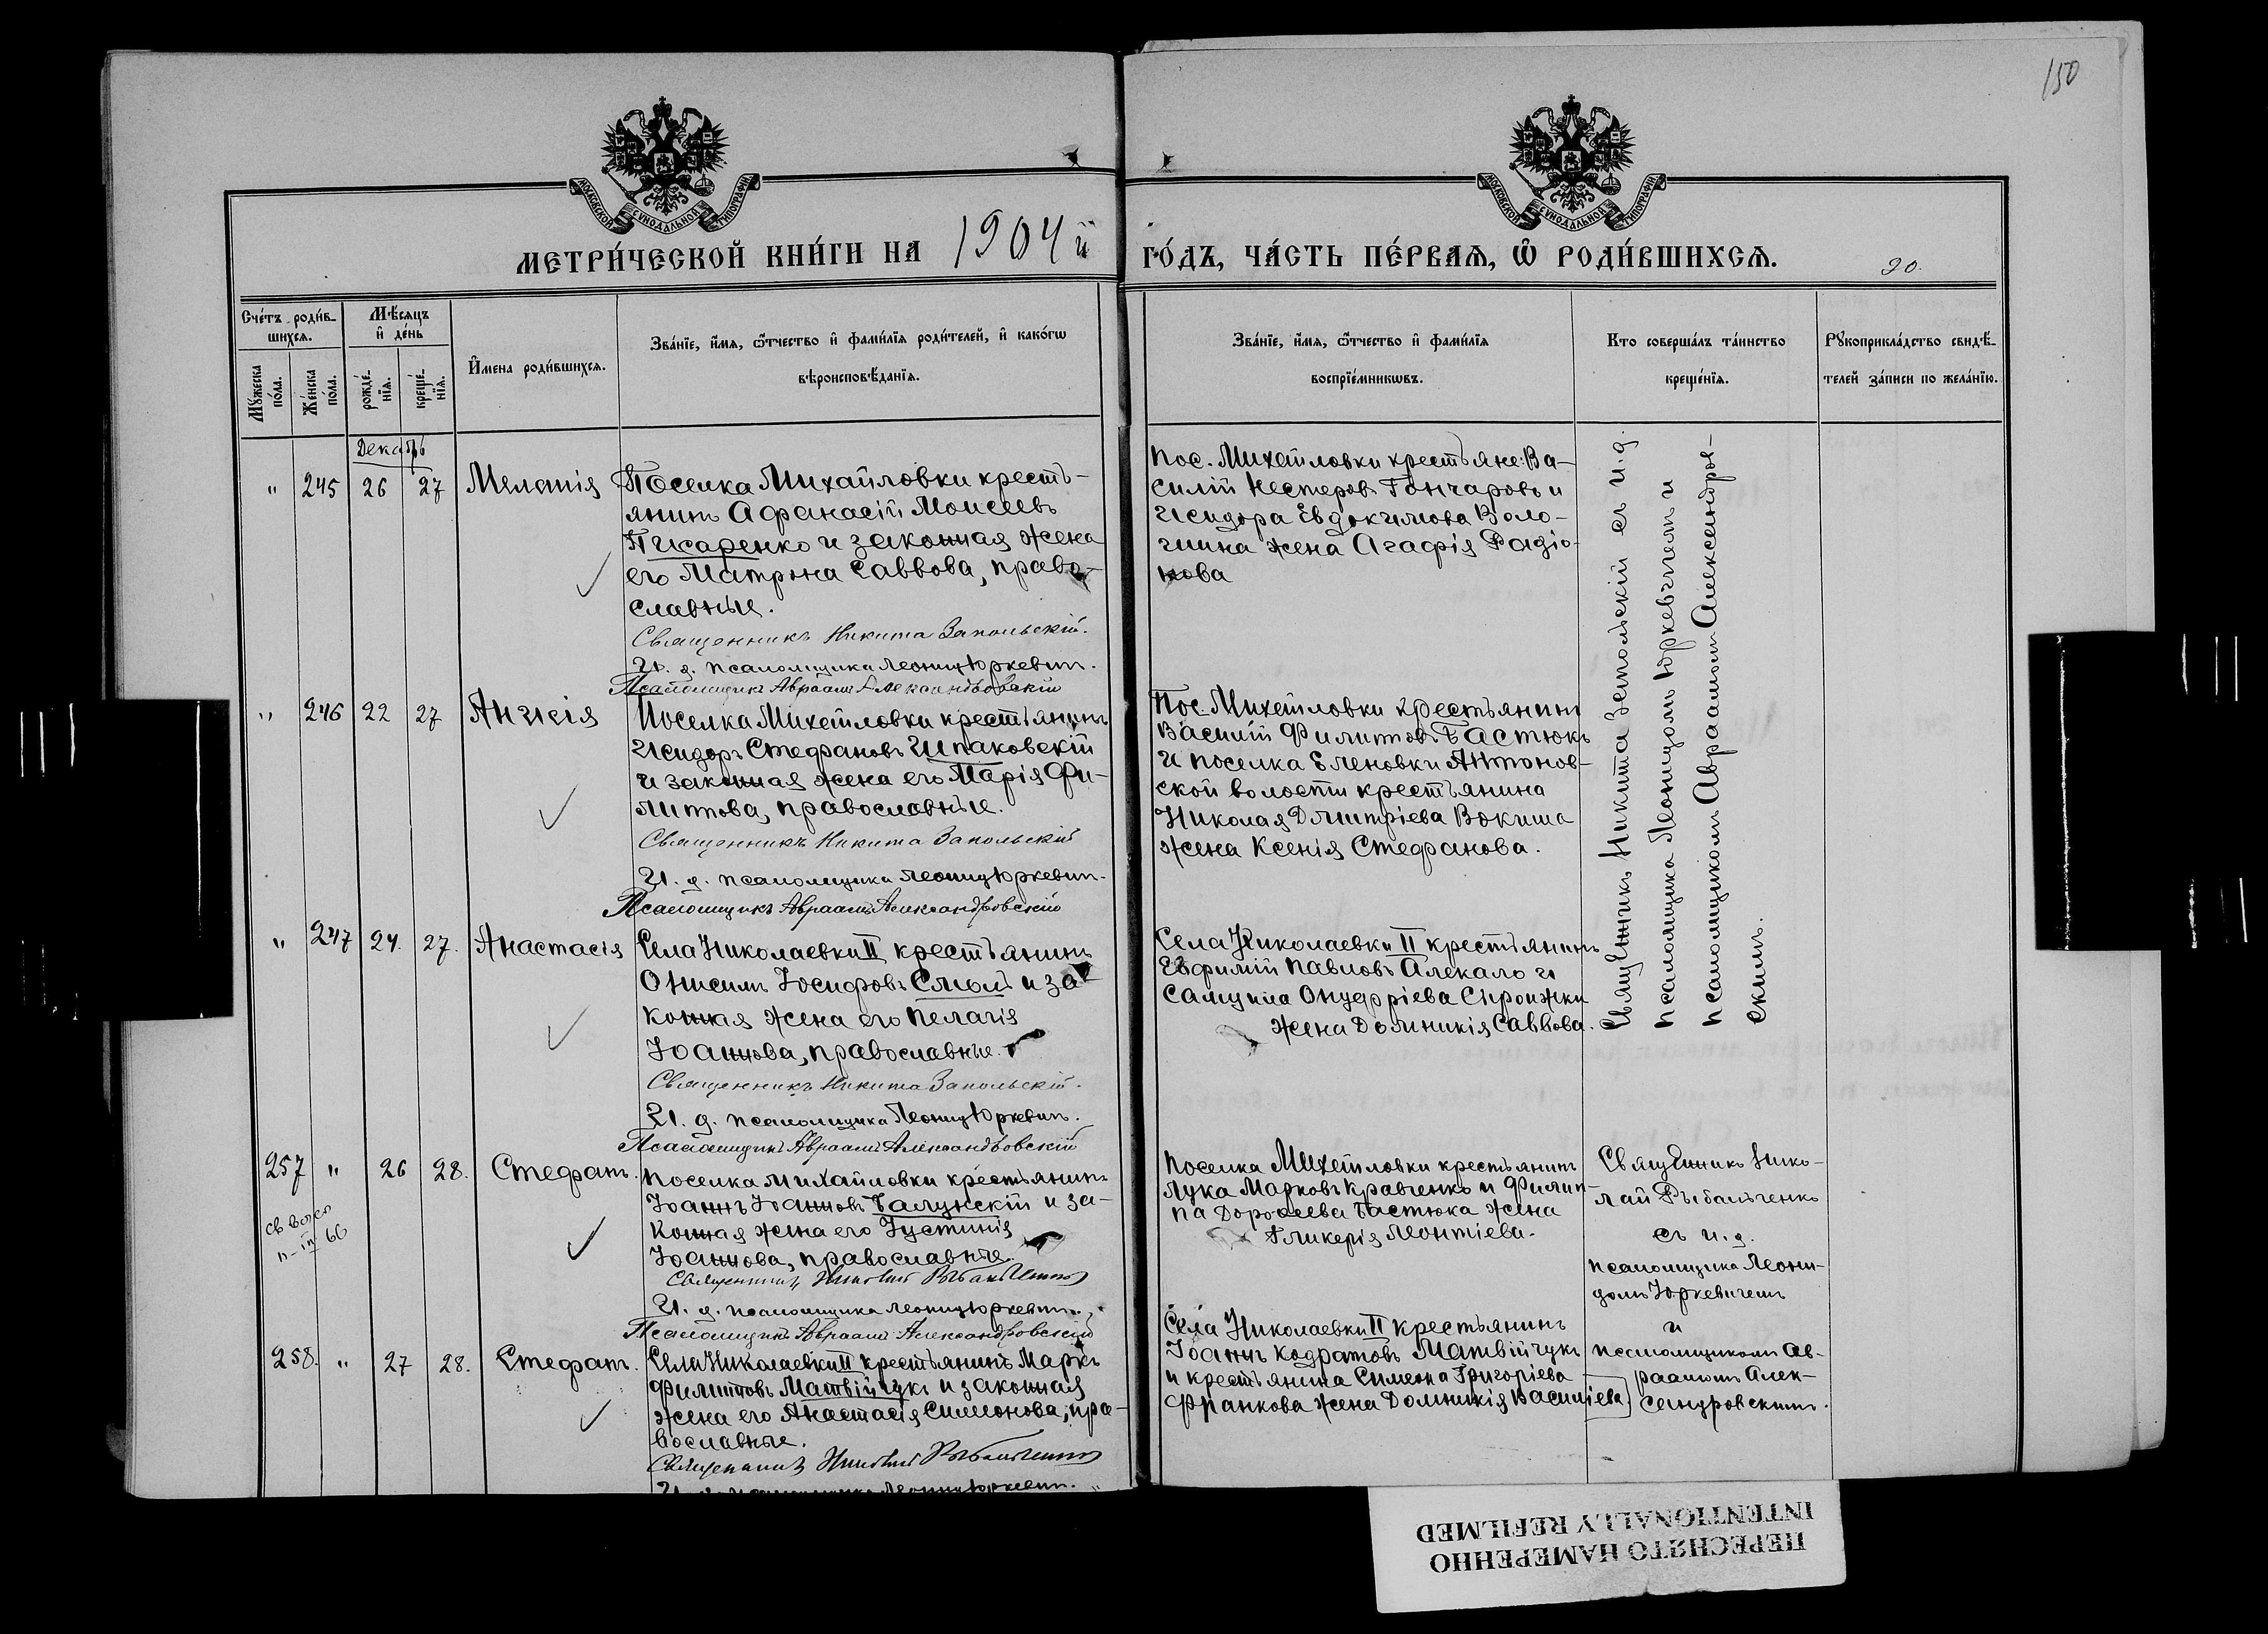 150
МОСКОВСКОЙ СУНОДАЛЬНОЙ ТИПОГРАФІИ
МОСКОВСКОЙ СУНОДАЛЬНОЙ ТИПОГРАФІИ
МЕТРИ́ЧЕСКОЙ КНИ́ГИ НА 1904 й
ГО́ДЪ, ЧА́СТЬ ПЕ́РВАѦ, Ѽ РОДИ́ВШИХСѦ.
90.
Сче́тъ роди́в-
шихсѧ.
Мѣ́сѧцъ
и҆ де́нь
Мꙋ́жеска
по́ла.
Же́нска
по́ла.
рожде́-
нїѧ.
креще́-
нїѧ.
И҆мена роди́вшихсѧ.
Зва́нїе, и҆́мѧ, ѻ҆́тчество и҆ фами́лїѧ роди́телей, и҆ како́гѡ
вѣроисповѣ́данїѧ.
Зва́нїе, и҆́мѧ, ѻ҆́тчество и҆ фами́лїѧ
воспрїе́мникѡвъ.
Кто соверша́лъ та́инство
креще́нїѧ.
Рꙋкоприкла́дство свидѣ́-
телей за́писи по жела́нїю.
Декабрь
" 245 26 27 Меланія
Поселка Михайловки кресть-
янинъ Афанасій Моисеевъ
Писаренко и законная жена
его Матрона Саввова, право-
славные.
Священникъ Никита Запольскій.
И. д. псаломщика Леонид Юркевич.
Псаломщикъ Авраамъ Александровскій
Пос. Михайловки крестьяне: Ва-
силій Нестеровъ Гончаровъ и
Исидора Евдокимова Воло-
шина жена Агафія Радіо-
нова
" 246 22 27 Анисія
Поселка Михайловки крестьянинъ
Исидоръ Стефановъ Шпаковскій
и законная жена его Марія Фи-
липпова, православные.
Священникъ Никита Запольскій
И. д. псаломщика Леонид Юркевич.
Псаломщикъ Авраамъ Александровскій
Пос. Михайловки крестьянинъ
Василій Филиповъ Бастюкъ
и поселка Еленовки Антонов-
ской волости крестьянина
Николая Дмитріева Вокиша
жена Ксенія Стефанова.
" 247 24. 27. Анастасія
Села Николаевки II крестьянинъ
Онисимъ Іосифовъ Смолъ и за-
конная жена его Пелагія
Іоаннова, православные.
Священникъ Никита Запольскій.
И. д. псаломщика Леонид Юркевич.
Псаломщикъ Авраамъ Александровскій
Села Николаевки II крестьянинъ
Евфимій Павловъ Алекало и
Самуила Онуфріева
жена Домникія Саввова.
Священникъ Никита Запольскій съ и.д.
псаломщика Леонидомъ Юркевичемъ и
псаломщикомъ Авраамомъ Александров-
скимъ.
257 " 26 28. Стефанъ.
66
Поселка Михайловки крестьянинъ
Іоаннъ Іоанновъ Балунскій и за-
конная жена его Іустинія
Іоаннова, православные.
Священникъ Николай Рыбальченко
И. д. псаломщика Леонид Юркевич.
Псаломщикъ Авраамъ Александровскій
Поселка Михайловки крестьянинъ
Лука Марковъ Кравченко и Филип-
па Дорофеева Бастюка жена
Гликерія Леонтіева.
Священникъ Нико-
лай Рыбальченко
съ и.д.
псаломщика Леони-
домъ Юркевичемъ
и
псаломщикомъ Ав-
раамомъ Алек-
сандровскимъ.
258. " 27 28. Стефанъ.
Села Николаевки II крестьянинъ Маркъ
Филипповъ Матвійчукъ и законная
жена его Анастасія Симеонова, пра-
вославные.
Священникъ Николай Рыбальченко
И. д. псаломщика Леонид Юркевич.
Села Николаевки II крестьянинъ
Іоаннъ Кодратовъ Матвійчукъ
и крестьянина Симеона Григоріева
Франкова жена Домникія Василіева.
ПЕРЕСНЯТО НАМЕРЕННО
INTENTIONALLY REFILMED